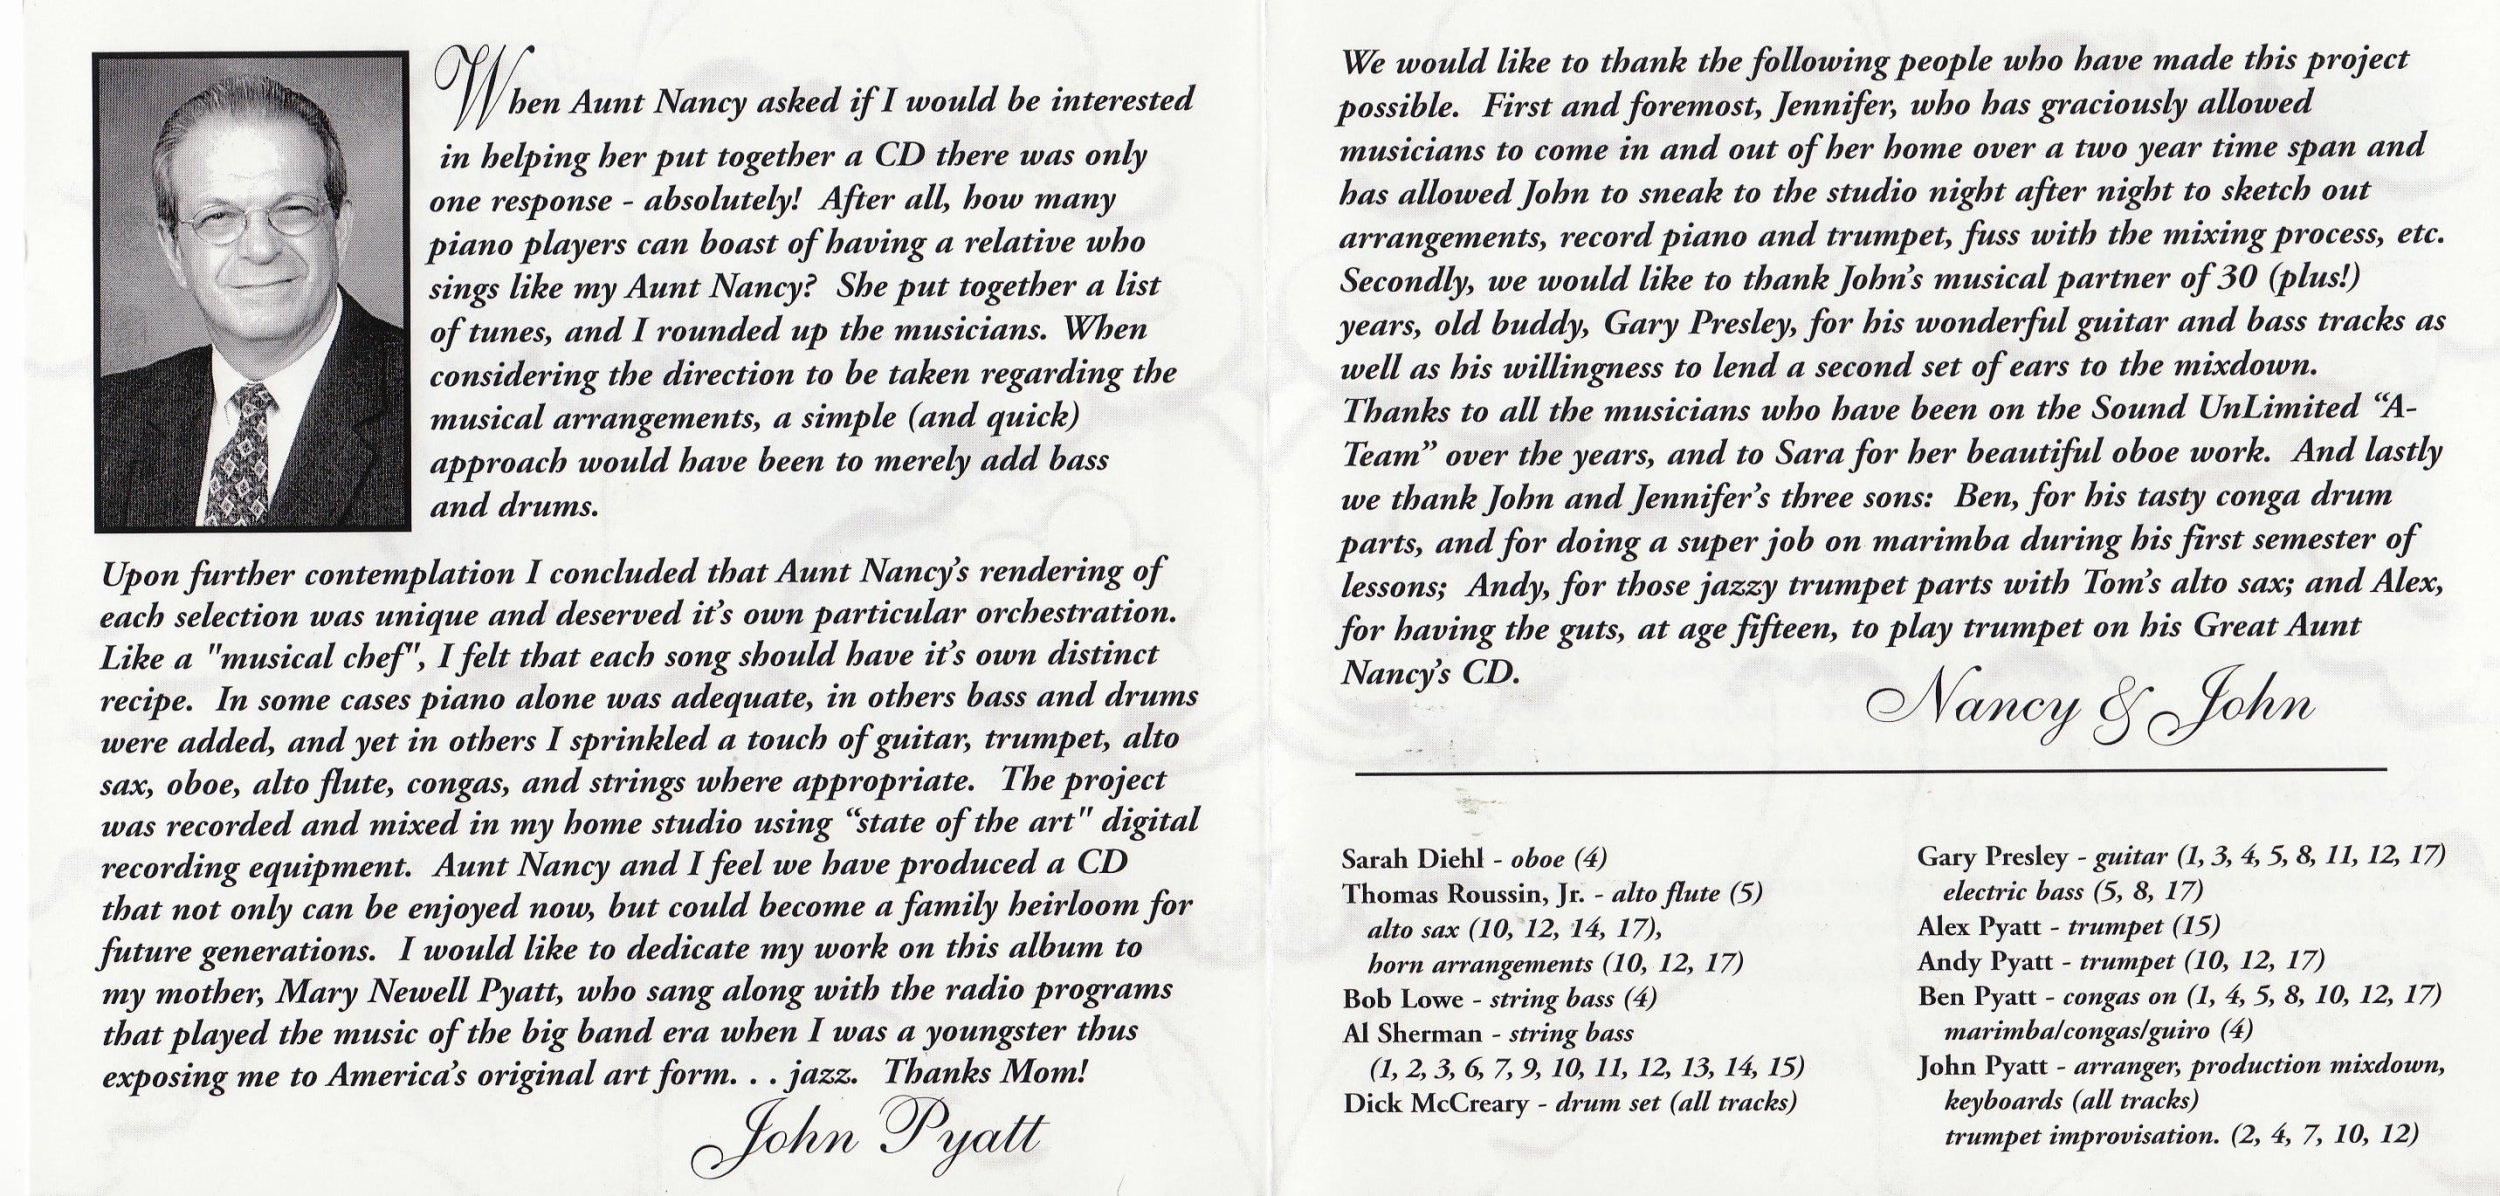 When Aunt Nancy asked if I would be interested
in helping her put together a CD there was only
one response - absolutely!  After all, how many
piano players can boast of having a relative who
sings like my Aunt Nancy?  She put together a list
of tunes, and I rounded up the musicians.  When
considering the direction to be taken regarding the
musical arrangements, a simple (and quick)
approach would have been to merely add bass
and drums.
Upon further contemplation I concluded that Aunt Nancy's rendering of
each selection was unique and deserved it's own particular orchestration.
Like a "musical chef", I felt that each song should have it's own distinct
recipe.  In some cases piano alone was adequate, in others bass and drums
were added, and yet in others I sprinkled a touch of guitar, trumpet, alto
sax, oboe, alto flute, congas, and strings where appropriate.  The project
was recorded and mixed in my home studio using “state of the art" digital
recording equipment.  Aunt Nancy and I feel we have produced a CD
that not only can be enjoyed now, but could become a family heirloom for
future generations.  I would like to dedicate my work on this album to
my mother, Mary Newell Pyatt, who sang along with the radio programs
that played the music of the big band era when I was a youngster thus
exposing me to America's original art form. . . jazz.  Thanks Mom!
John Pyatt
We would like to thank the following people who have made this project
possible.  First and foremost, Jennifer, who has graciously allowed
musicians to come in and out of her home over a two year time span and
has allowed John to sneak to the studio night after night to sketch out
arrangements, record piano and trumpet, fuss with the mixing process, etc.
Secondly, we would like to thank John's musical partner of 30 (plus!)
years, old buddy, Gary Presley, for his wonderful guitar and bass tracks as
well as his willingness to lend a second set of ears to the mixdown.
Thanks to all the musicians who have been on the Sound UnLimited “A-
Team” over the years, and to Sara for her beautiful oboe work.  And lastly
we thank John and Jennifer's three sons:  Ben, for his tasty conga drum
parts, and for doing a super job on marimba during his first semester of
lessons;  Andy, for those jazzy trumpet parts with Tom's alto sax; and Alex,
for having the guts, at age fifteen, to play trumpet on his Great Aunt
Nancy's CD.
Nancy & John
Sarah Diehl - oboe (4)
Thomas Roussin, Jr. - alto flute (5)
alto sax (10, 12, 14, 17),
horn arrangements (10, 12, 17)
Bob Lowe - string bass (4)
Al Sherman - string bass
(1, 2, 3, 6, 7, 9, 10, 11, 12, 13, 14, 15)
Dick McCreary - drum set (all tracks)
Gary Presley - guitar (1, 3, 4, 5, 8, 11, 12, 17)
electric bass (5, 8, 17)
Alex Pyatt - trumpet (15)
Andy Pyatt - trumpet (10, 12, 17)
Ben Pyatt - congas on (1, 4, 5, 8, 10, 12, 17)
marimba/congas/guiro (4)
John Pyatt - arranger, production mixdown,
keyboards (all tracks)
trumpet improvisation. (2, 4, 7, 10, 12)